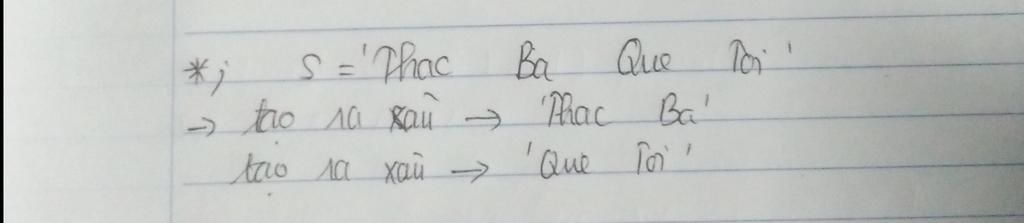 *; S = 'Thac Ba Que Toi'
→ tạo ra xaũ → 'Thac Ba'
tạo ra xaũ → 'Que Toi'